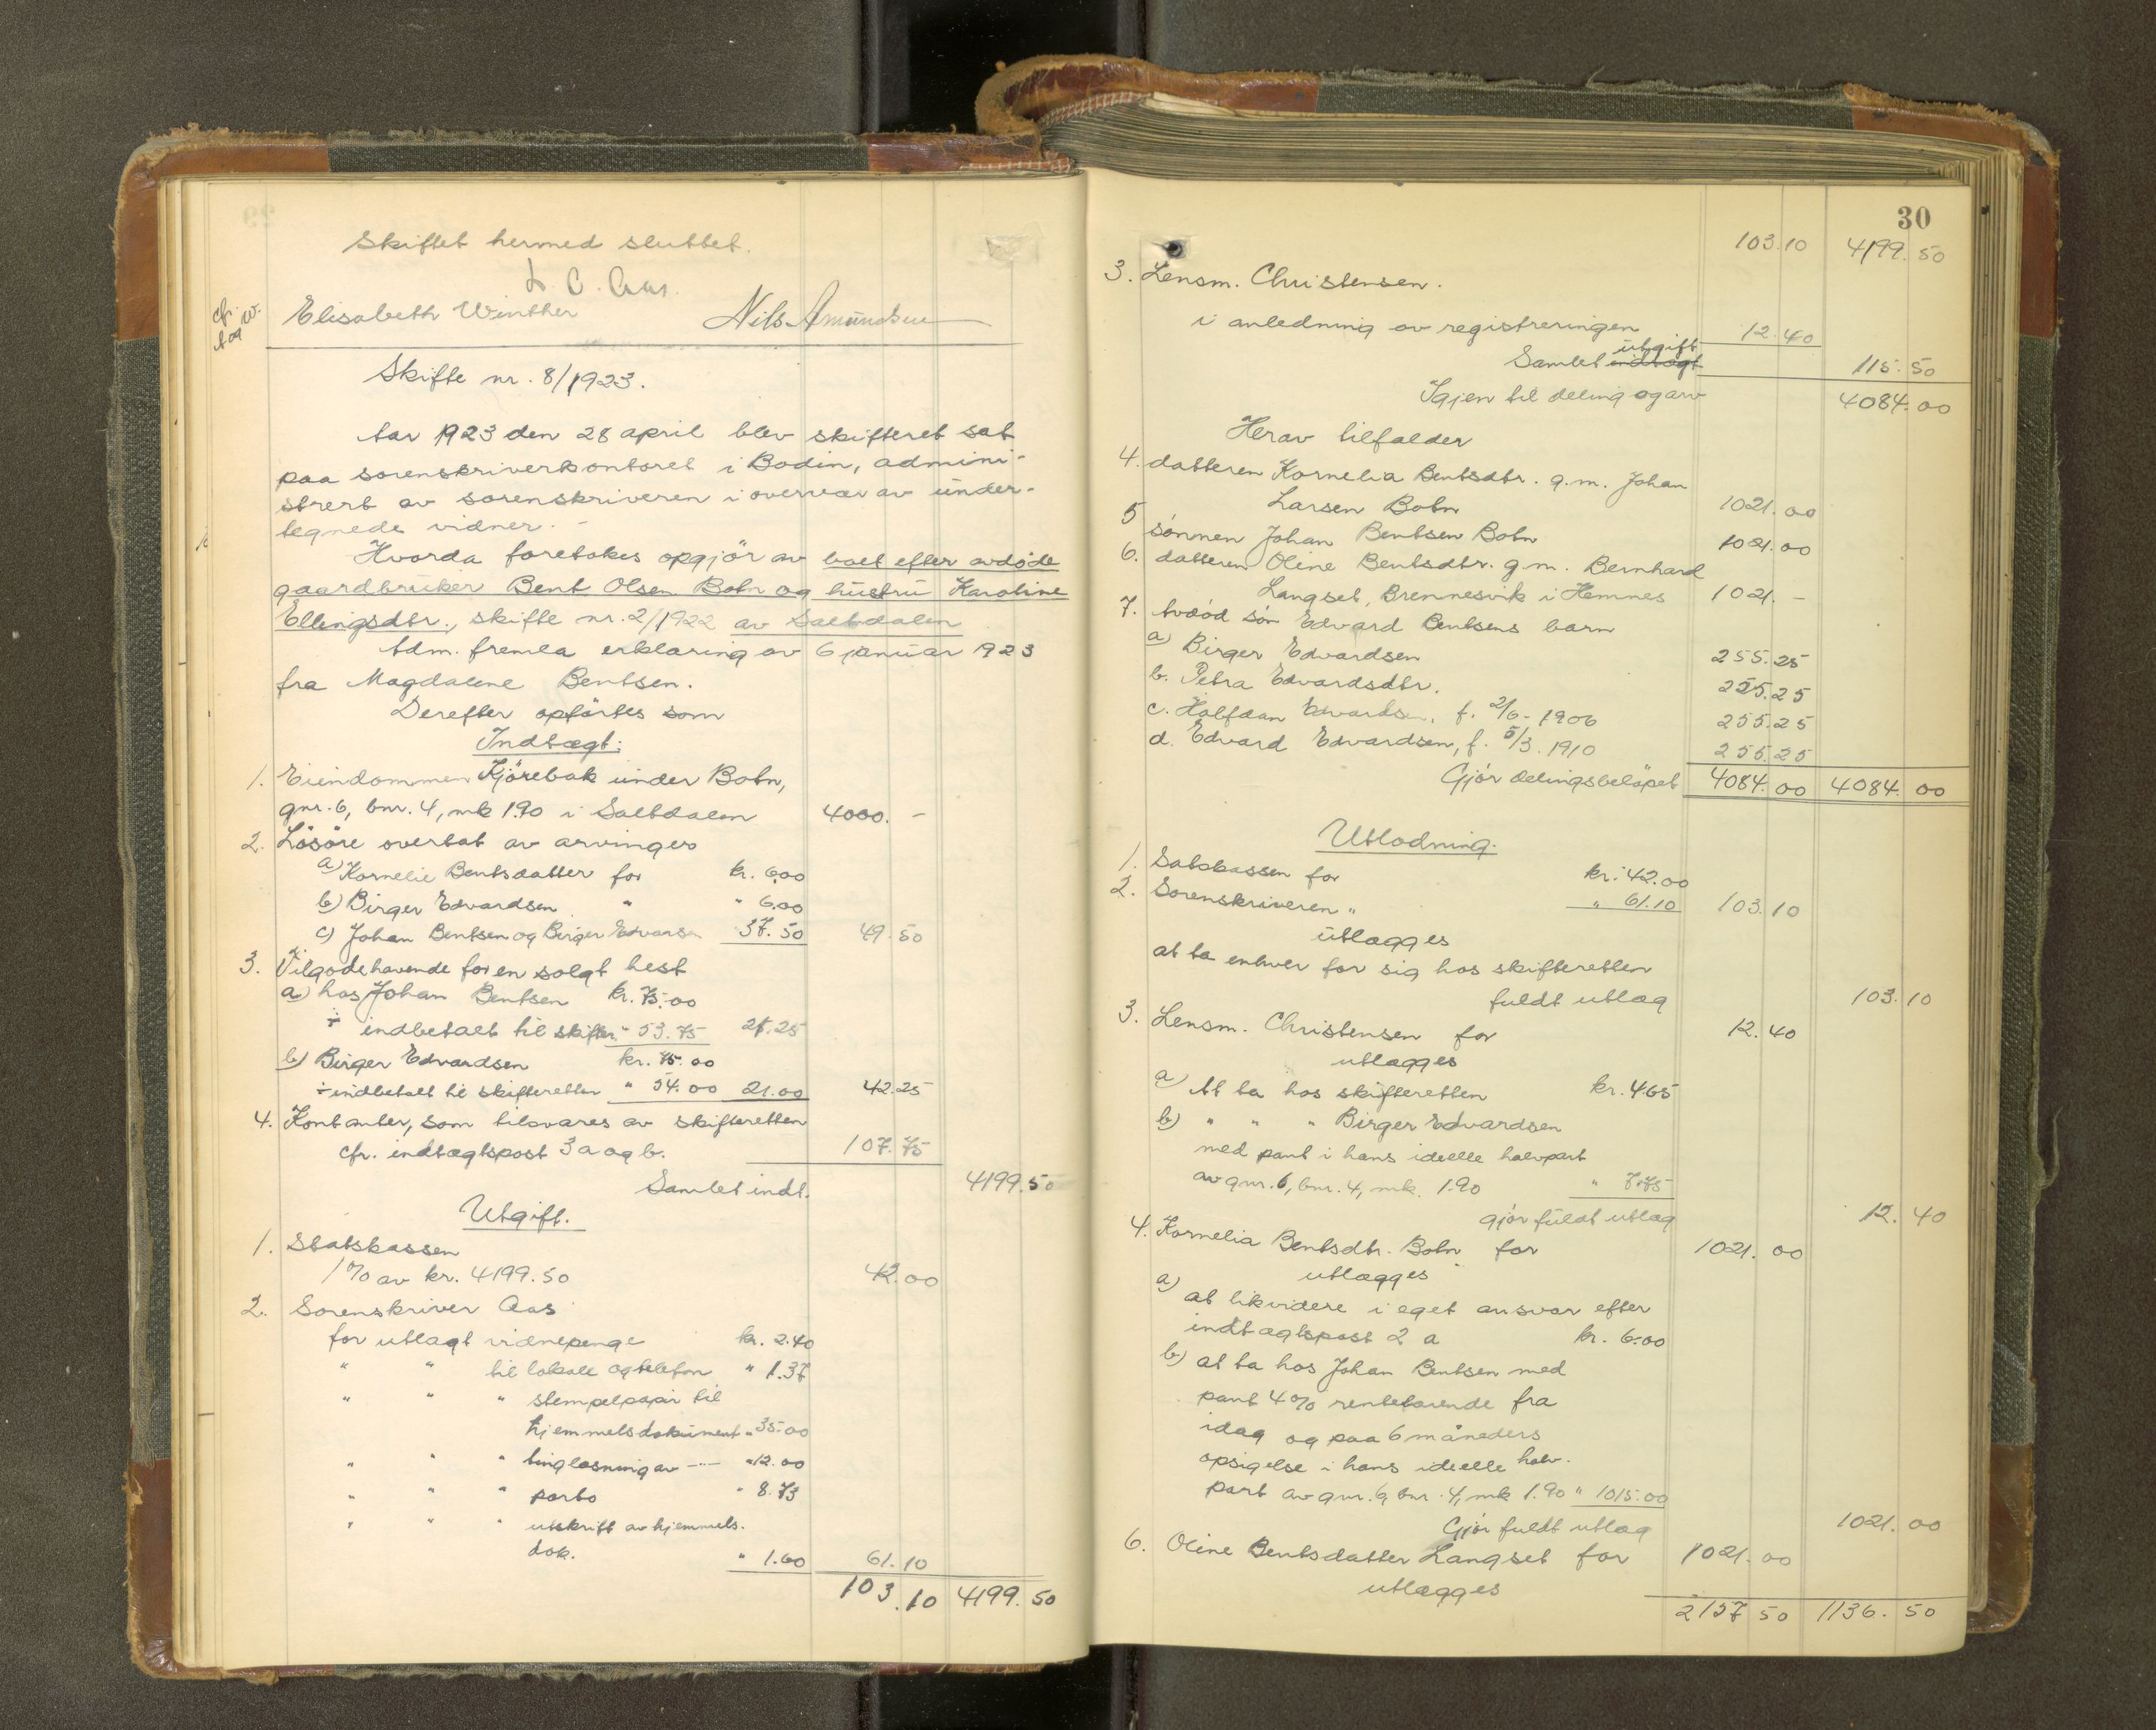 Skiftet hermed sluttet.
L. C. Aas.
Elisabeth Winther Nils Amundsen
cfr.
Skifte nr. 8/1923.
Aar 1923 den 28 april blev skifteret sat
paa sorenskriverkontoret i Bodin, admini-
strert av sorenskriveren i overvær av under-
tegnede vidner. -
Hvorda foretokes opgjör av boet efter avdöde
gaardbruker Bent Olsen Botn og hustru Karoline
Ellingsdtr., skifte nr. 2/1922 av Saltdalen
Adm. fremla erklæring av 6 januar 1923
fra Magdalene Bentsen.
Derefter opförtes som
Indtægt:
1. Eiendommen Kjörebak under Botn,
gnr. 6, bnr. 4, mk 1.90 i Saltdalen 4000. -
2. Lösöre overtat av arvinger
a) Kornelie Bentsdatter for kr. 6.00
b) Birger Edvardsen " " 6.00
c) Johan Bentsen og Birger Edvardsen 37.50 49.50
3. Tilgodehavende for en solgt hest
a) hos Johan Bentsen kr. 75.00
÷ indbetalt til skifter. " 53.75 21.25
b) Birger Edvardsen kr. 75.00
÷ indbetalt til skifteretten " 54.00 21.00 42.25
4. Kontanter, som tilsvares av skifteretten
cfr. indtægtspost 3 a og b. 107.75
Samlet indt. 4199.50
Utgift.
1. Statskassen
1% av kr. 4199.50 42.00
2. Sorenskriver Aas
for utlagt vidnepenge kr. 2.40
" " til lokale og telefon " 1.37
" " " stempelpapir til
hjemmelsdokument " 35.00
" " " tinglæsning av -"- " 12.00
" " " porto " 8.73
" " " utskrift av hjemmels-
dok. " 1.60 61.10
103.10 4199.50
30
103.10 4199.50
3. Lensm. Christensen.
i anledning av registreringen 12.40
utgift
Samlet indtægt 115.50
Igjen til deling og arv 4084.00
Herav tilfalder
4. datteren Kornelia Bentsdtr. g.m. Johan
Larsen Botn 1021.00
5 sönnen Johan Bentsen Botn 1021.00
6. datteren Oline Bentsdtr. g.m. Bernhard
Langset, Brennesvik i Hemnes 1021. -
7. avdöd sön Edvard Bentsens barn
a) Birger Edvardsen 255.25
b. Petra Edvardsdtr. 255.25
c. Halfdan Edvardsen, f. 2/6-1906 255.25
d. Edvard Edvardsen, f. 5/3.1910 255.25
Gjör delingsbelöpet 4084.00 4084.00
Utlodning.
1. Satskassen for kr. 42.00
2. Sorenskriveren " " 61.10 103.10
utlægges
at ta enhver for sig hos skifteretten
fuldt utlæg 103.10
3. Lensm. Christensen for 12.40
utlægges
a) At ta hos skifteretten kr. 4.65
b) " " " Birger Edvardsen
med pant i hans ideelle halvpart
av gnr. 6, bnr. 4, mk. 1.90 " 7.75
gjör fuldt utlæg 12.40
4. Kornelia Bentsdtr. Botn for 1021.00
utlægges
a) at likvidere i eget ansvar efter
indtægtspost 2 a kr. 6.00
b) at ta hos Johan Bentsen med
pant 4% rentebærende fra
idag og paa 6 måneders
opsigelse i hans ideelle halv-
part av gnr. 6, bnr. 4, mk 1.90 " 1015.00
Gjör fuldt utlæg 1021.00
6. Oline Bentsdatter Langset for 1021.00
utlægges
2157.50 1136.50